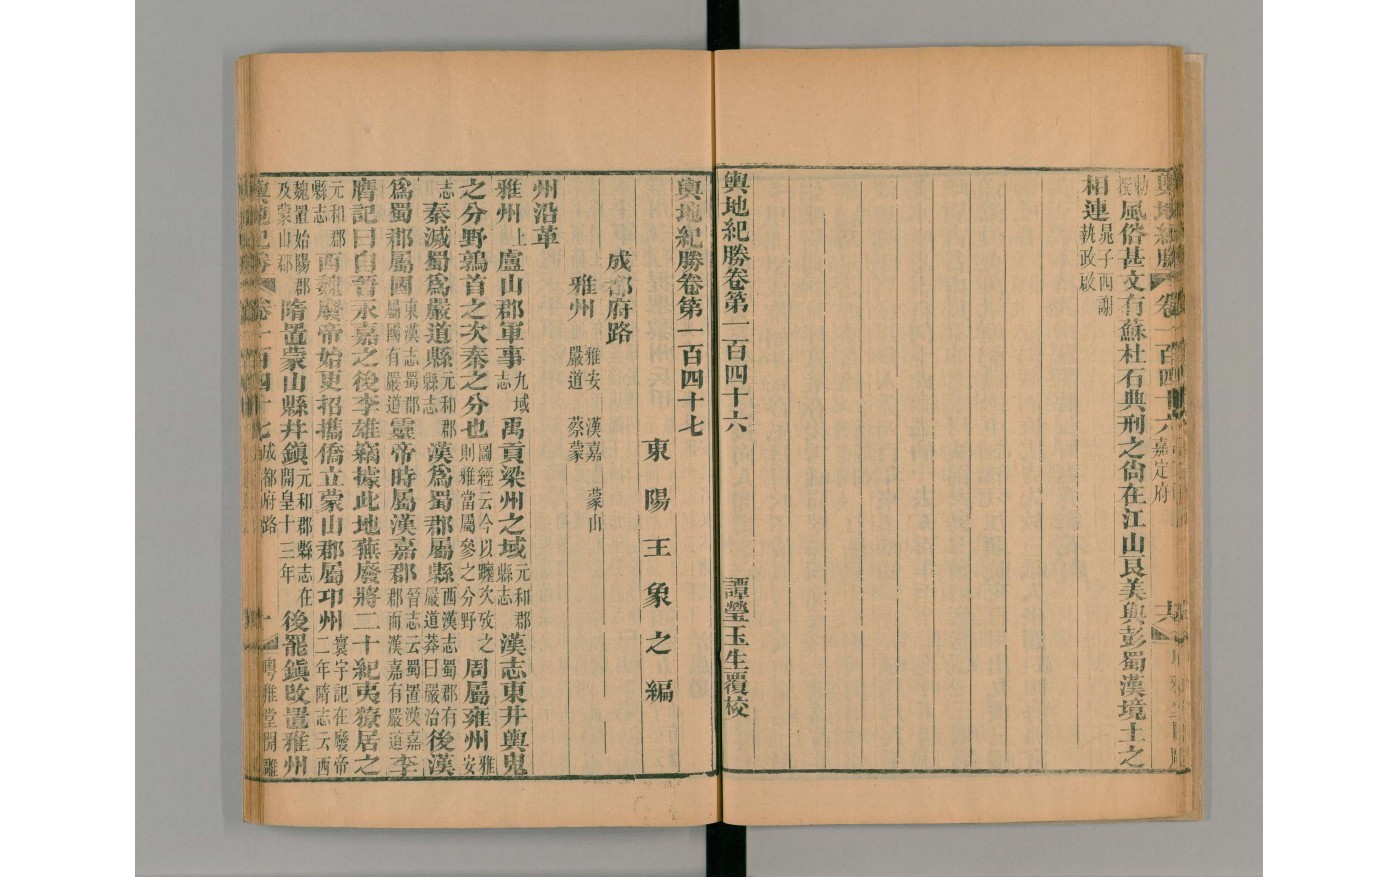 輿地紀勝 卷一百四十六 嘉定府
風俗甚文有蘇杜石典刑之尙在江山良美與彭蜀漢境土之
相連 晁子西謝執政啟
輿地紀勝卷第一百四十六 譚瑩玉生覆校
輿地紀勝卷第一百四十七
東陽王象之編
成都府路
雅州 雅安 漢嘉 蒙山 嚴道 蔡蒙
州沿革
雅州 上 盧山郡軍事 九域志 禹貢梁州之域 元和郡縣志 漢志東井輿鬼
之分野鶉首之次秦之分也 圖經云今以躔次攷之則雅當屬參之分野 周屬雍州 雅安
志 秦滅蜀爲嚴道縣 元和郡縣志 漢爲蜀郡屬縣 西漢志蜀郡有嚴道莽曰嚴治 後漢
爲蜀郡屬國 東漢志蜀郡屬國有嚴道 靈帝時屬漢嘉郡 晉志云蜀置漢嘉郡而漢嘉有嚴道 李
膺記曰自晉永嘉之後李雄竊據此地蕪廢將二十紀夷獠居之
元和郡縣志 西魏廢帝始更招攜僑立蒙山郡屬邛州 寰宇記在廢帝二年隋志云西
魏置始陽郡及蒙山郡 隋置蒙山縣幷鎭 元和郡縣志在開皇十三年 後罷鎭改置雅州
輿地紀勝 卷一百四十七 成都府路 一 粵雅堂開雕